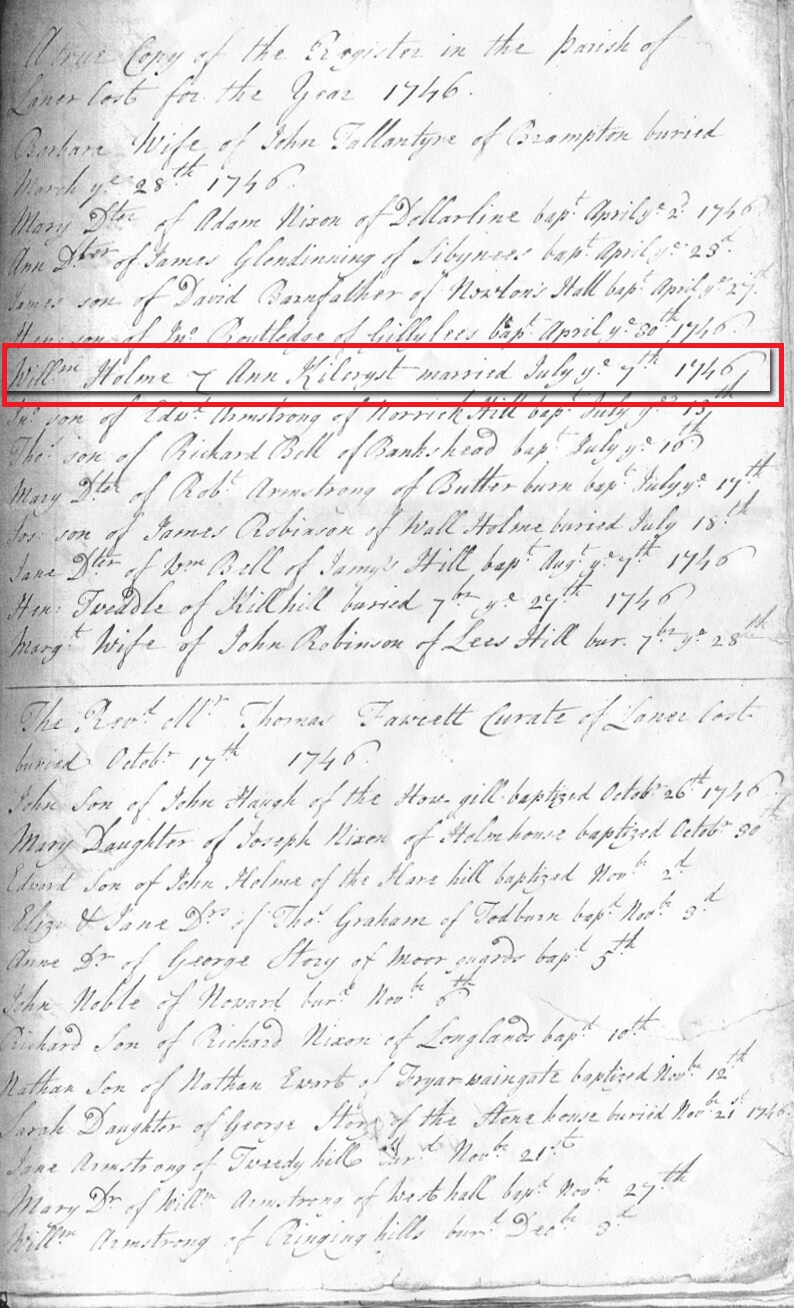 A true Copy of the Register in the Parish of
Laner Cost for the Year 1746.
Barbara Wife of John Tallantyre of Brampton buried
March ye 28th 1746.
Mary Dter of Adam Nixon of Dollarline bapt April ye 2d 1746
Ann Dter of James Glendinning of Sibynees bapt April ye 23d
James son of David Barnfather of Nowton's Hall bapt April ye 27th
Hen: son of Jno Routledge of Gillylees bapt April ye 30th 1746
Willm Holme & Ann Kilcryst married July ye 7th 1746
Jno son of Edwd Armstrong of Norrick Hill bapt July ye 13th
Thos son of Richard Bell of Bankshead bapt July ye 16th
Mary Dter of Robt Armstrong of Butter burn bapt July ye 17th
Jos: son of James Robinson of Wall Holme buried July 18th
Jane Dter of Wm Bell of Jamy's Hill bapt Augt ye 7th 1746
Hen: Tweadle of Killhill buried 7br ye 27th 1746
Margt Wife of John Robinson of Lees Hill bur. 7br ye 28th
The Revd Mr Thomas Fawcett Curate of Laner Cost
buried Octobr 17th 1746.
John Son of John Haugh of the How-gill baptized Octobr 26th 1746
Mary Daughter of Joseph Nixon of Holmhouse baptized Octobr 30th
Edward Son of John Holme of the Hare hill baptized Novbr 2d
Eliz: & Jane Drs of Thos Graham of Todburn bapt Novbr 3d
Anne Dr of George Story of Moor guards bapt 5th
John Noble of Noward burd Novbr 6th
Richard Son of Richard Nixon of Longlands bapt 10th
Nathan Son of Nathan Ewart of Fryar-waingate baptized Novbr 12th
Sarah Daughter of George Story of the Stone house buried Novbr 21st 1746
Jane Armstrong of Tweedy hill burd Novbr 21st
Mary Dr of Willm Armstrong of West hall bapt Novbr 27th
Willm Armstrong of Ringing hills burd Decbr 3d